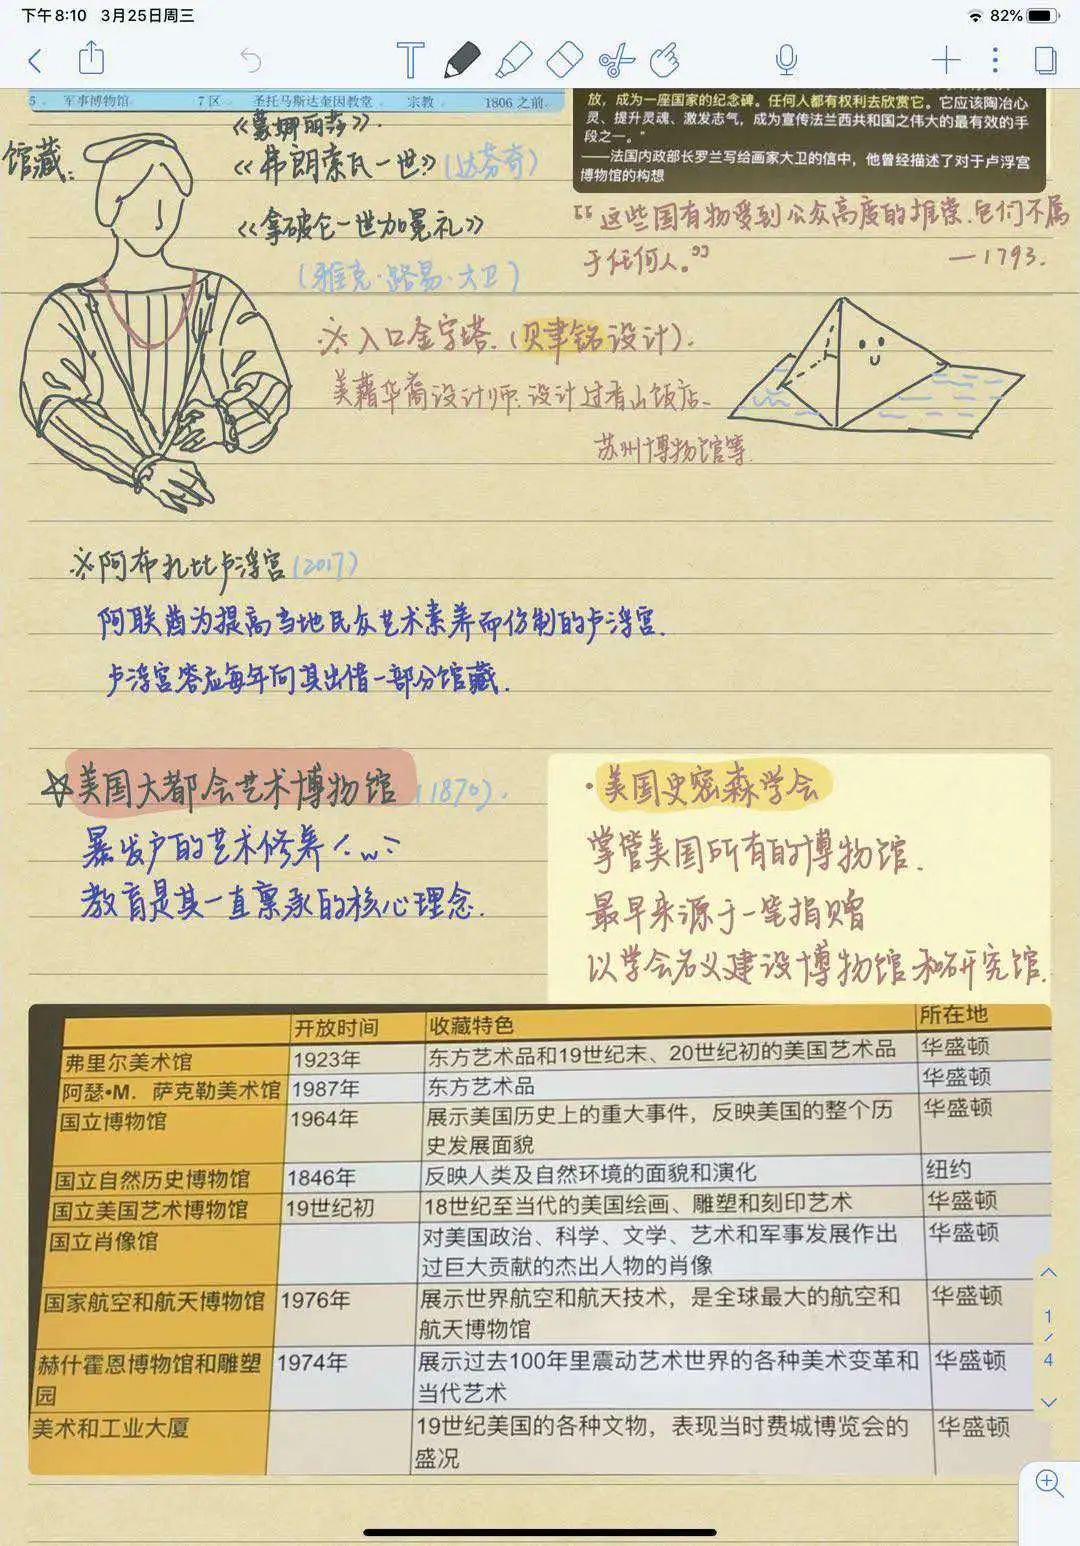 下午8:10 3月25日周三
82%
T
5 军事博物馆 7区 圣托马斯达奎因教堂 宗教 1806之前
放，成为一座国家的纪念碑。任何人都有权利去欣赏它。它应该陶冶心
灵、提升灵魂、激发志气，成为宣传法兰西共和国之伟大的最有效的手
段之一。”
——法国内政部长罗兰写给画家大卫的信中，他曾经描述了对于卢浮宫
博物馆的构想
馆藏：
《蒙娜丽莎》.
《弗朗索瓦一世》(达芬奇)
《拿破仑一世加冕礼》
(雅克·路易·大卫)
“这些国有物受到公众高度的推崇.它们不属
于任何人。”
—1793.
※入口金字塔.(贝聿铭设计).
美籍华裔设计师.设计过香山饭店、
苏州博物馆等.
※阿布扎比卢浮宫(2017)
阿联酋为提高当地民众艺术素养而仿制的卢浮宫.
卢浮宫答应每年向其出借一部分馆藏.
☆美国大都会艺术博物馆(1870).
暴发户的艺术修养
教育是其一直禀承的核心理念.
·美国史密森学会
掌管美国所有的博物馆.
最早来源于一笔捐赠
以学会名义建设博物馆和研究馆.
开放时间 收藏特色 所在地
弗里尔美术馆 1923年 东方艺术品和19世纪末、20世纪初的美国艺术品 华盛顿
阿瑟•M．萨克勒美术馆 1987年 东方艺术品 华盛顿
国立博物馆 1964年 展示美国历史上的重大事件，反映美国的整个历 华盛顿
史发展面貌
国立自然历史博物馆 1846年 反映人类及自然环境的面貌和演化 纽约
国立美国艺术博物馆 19世纪初 18世纪至当代的美国绘画、雕塑和刻印艺术 华盛顿
国立肖像馆 对美国政治、科学、文学、艺术和军事发展作出 华盛顿
过巨大贡献的杰出人物的肖像
国家航空和航天博物馆 1976年 展示世界航空和航天技术，是全球最大的航空和 华盛顿
航天博物馆
赫什霍恩博物馆和雕塑 1974年 展示过去100年里震动艺术世界的各种美术变革和 华盛顿
园 当代艺术
美术和工业大厦 19世纪美国的各种文物，表现当时费城博览会的 华盛顿
盛况
1/4